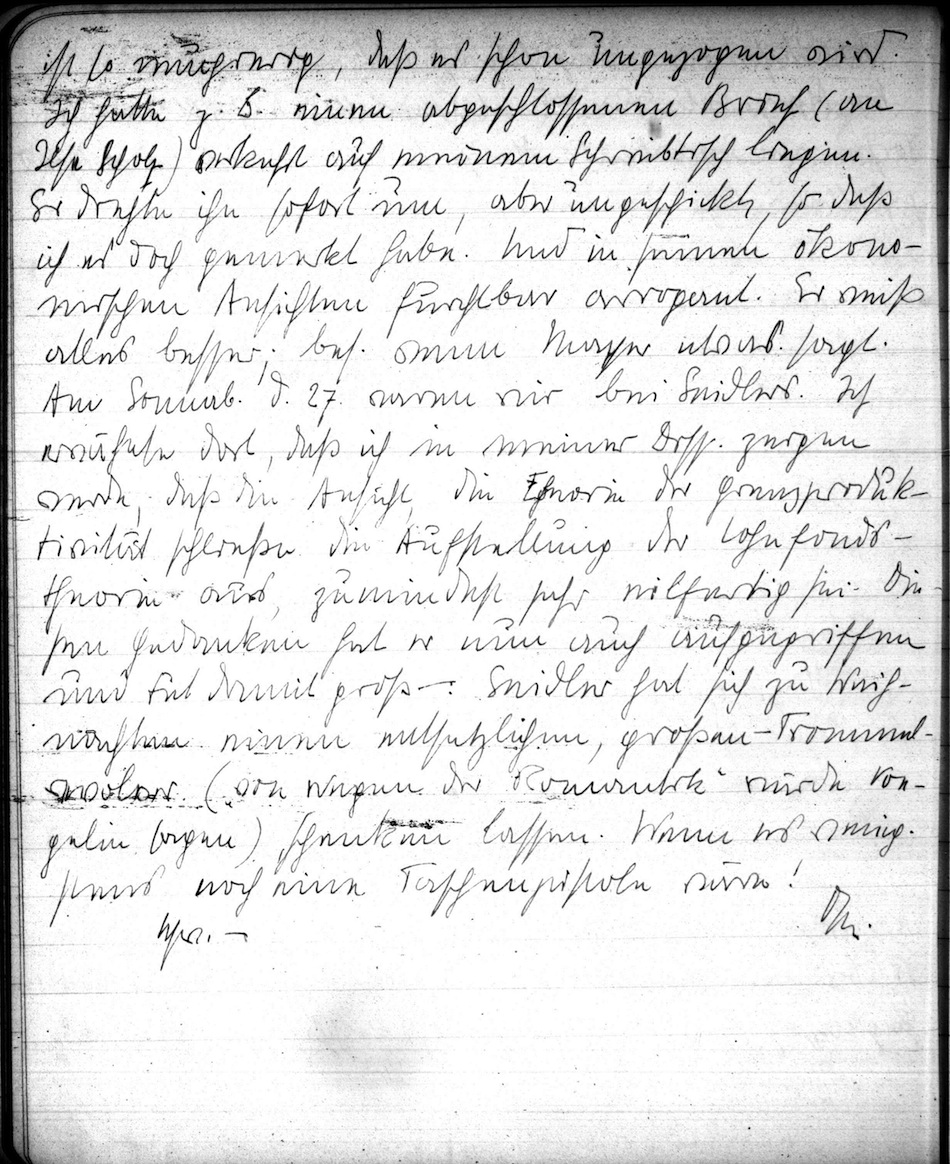 ist so neugierig, daß es schon ungezogen wird.
Ich hatte z. B. einen abgeschlossenen Brief (an
Ilse Scholz) verkehrt auf meinem Schreibtisch liegen.
Er drehte ihn sofort um, aber ungeschickt, so daß
ich es doch gemerkt habe. Und in seinen ökono-
mischen Ansichten furchtbar arrogant. Er weiß
alles besser; bes. wenn Mayer etwas sagt.
Am Sonnab. d. 27. waren wir bei Seidlers. Ich
erwähnte dort, daß ich in meiner Diss. zeigen
werde, daß die Ansicht, die Theorie der Grenzproduk-
tivität schließe die Aufstellung der Lohnfonds-
theorie aus, zumindest sehr voreilig sei. Die-
sen Gedanken hat er nun auch aufgegriffen
und tut damit groß—: Seidler hat sich zu Weih-
nachten einen entsetzlichen, großen Trommel-
revolver („von wegen der Romantik“ würde
sagen) schenken lassen. Wenn es wenig-
stens noch eine Taschenpistole wäre!